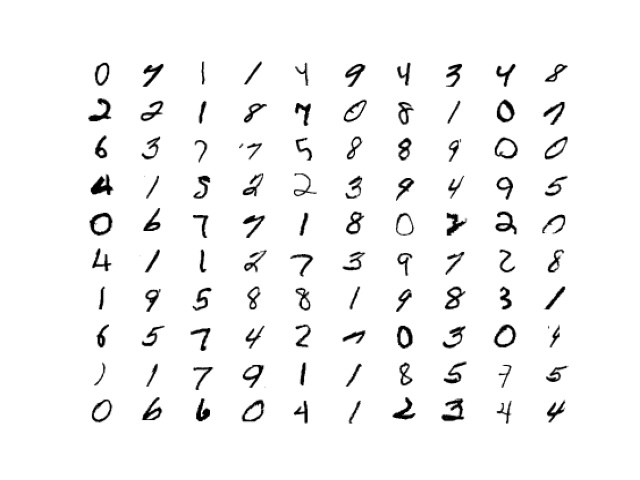 0 7 1 1 4 9 4 3 4 8
2 2 1 8 7 0 8 1 0 7
6 3 7 7 5 8 8 9 0 0
4 1 5 2 2 3 9 4 9 5
0 6 7 7 1 8 0 2 2 0
4 1 1 2 7 3 9 7 2 8
1 9 5 8 8 1 9 8 3 1
6 5 7 4 2 7 0 3 0 4
) 1 7 9 1 1 8 5 7 5
0 6 6 0 4 1 2 3 4 4